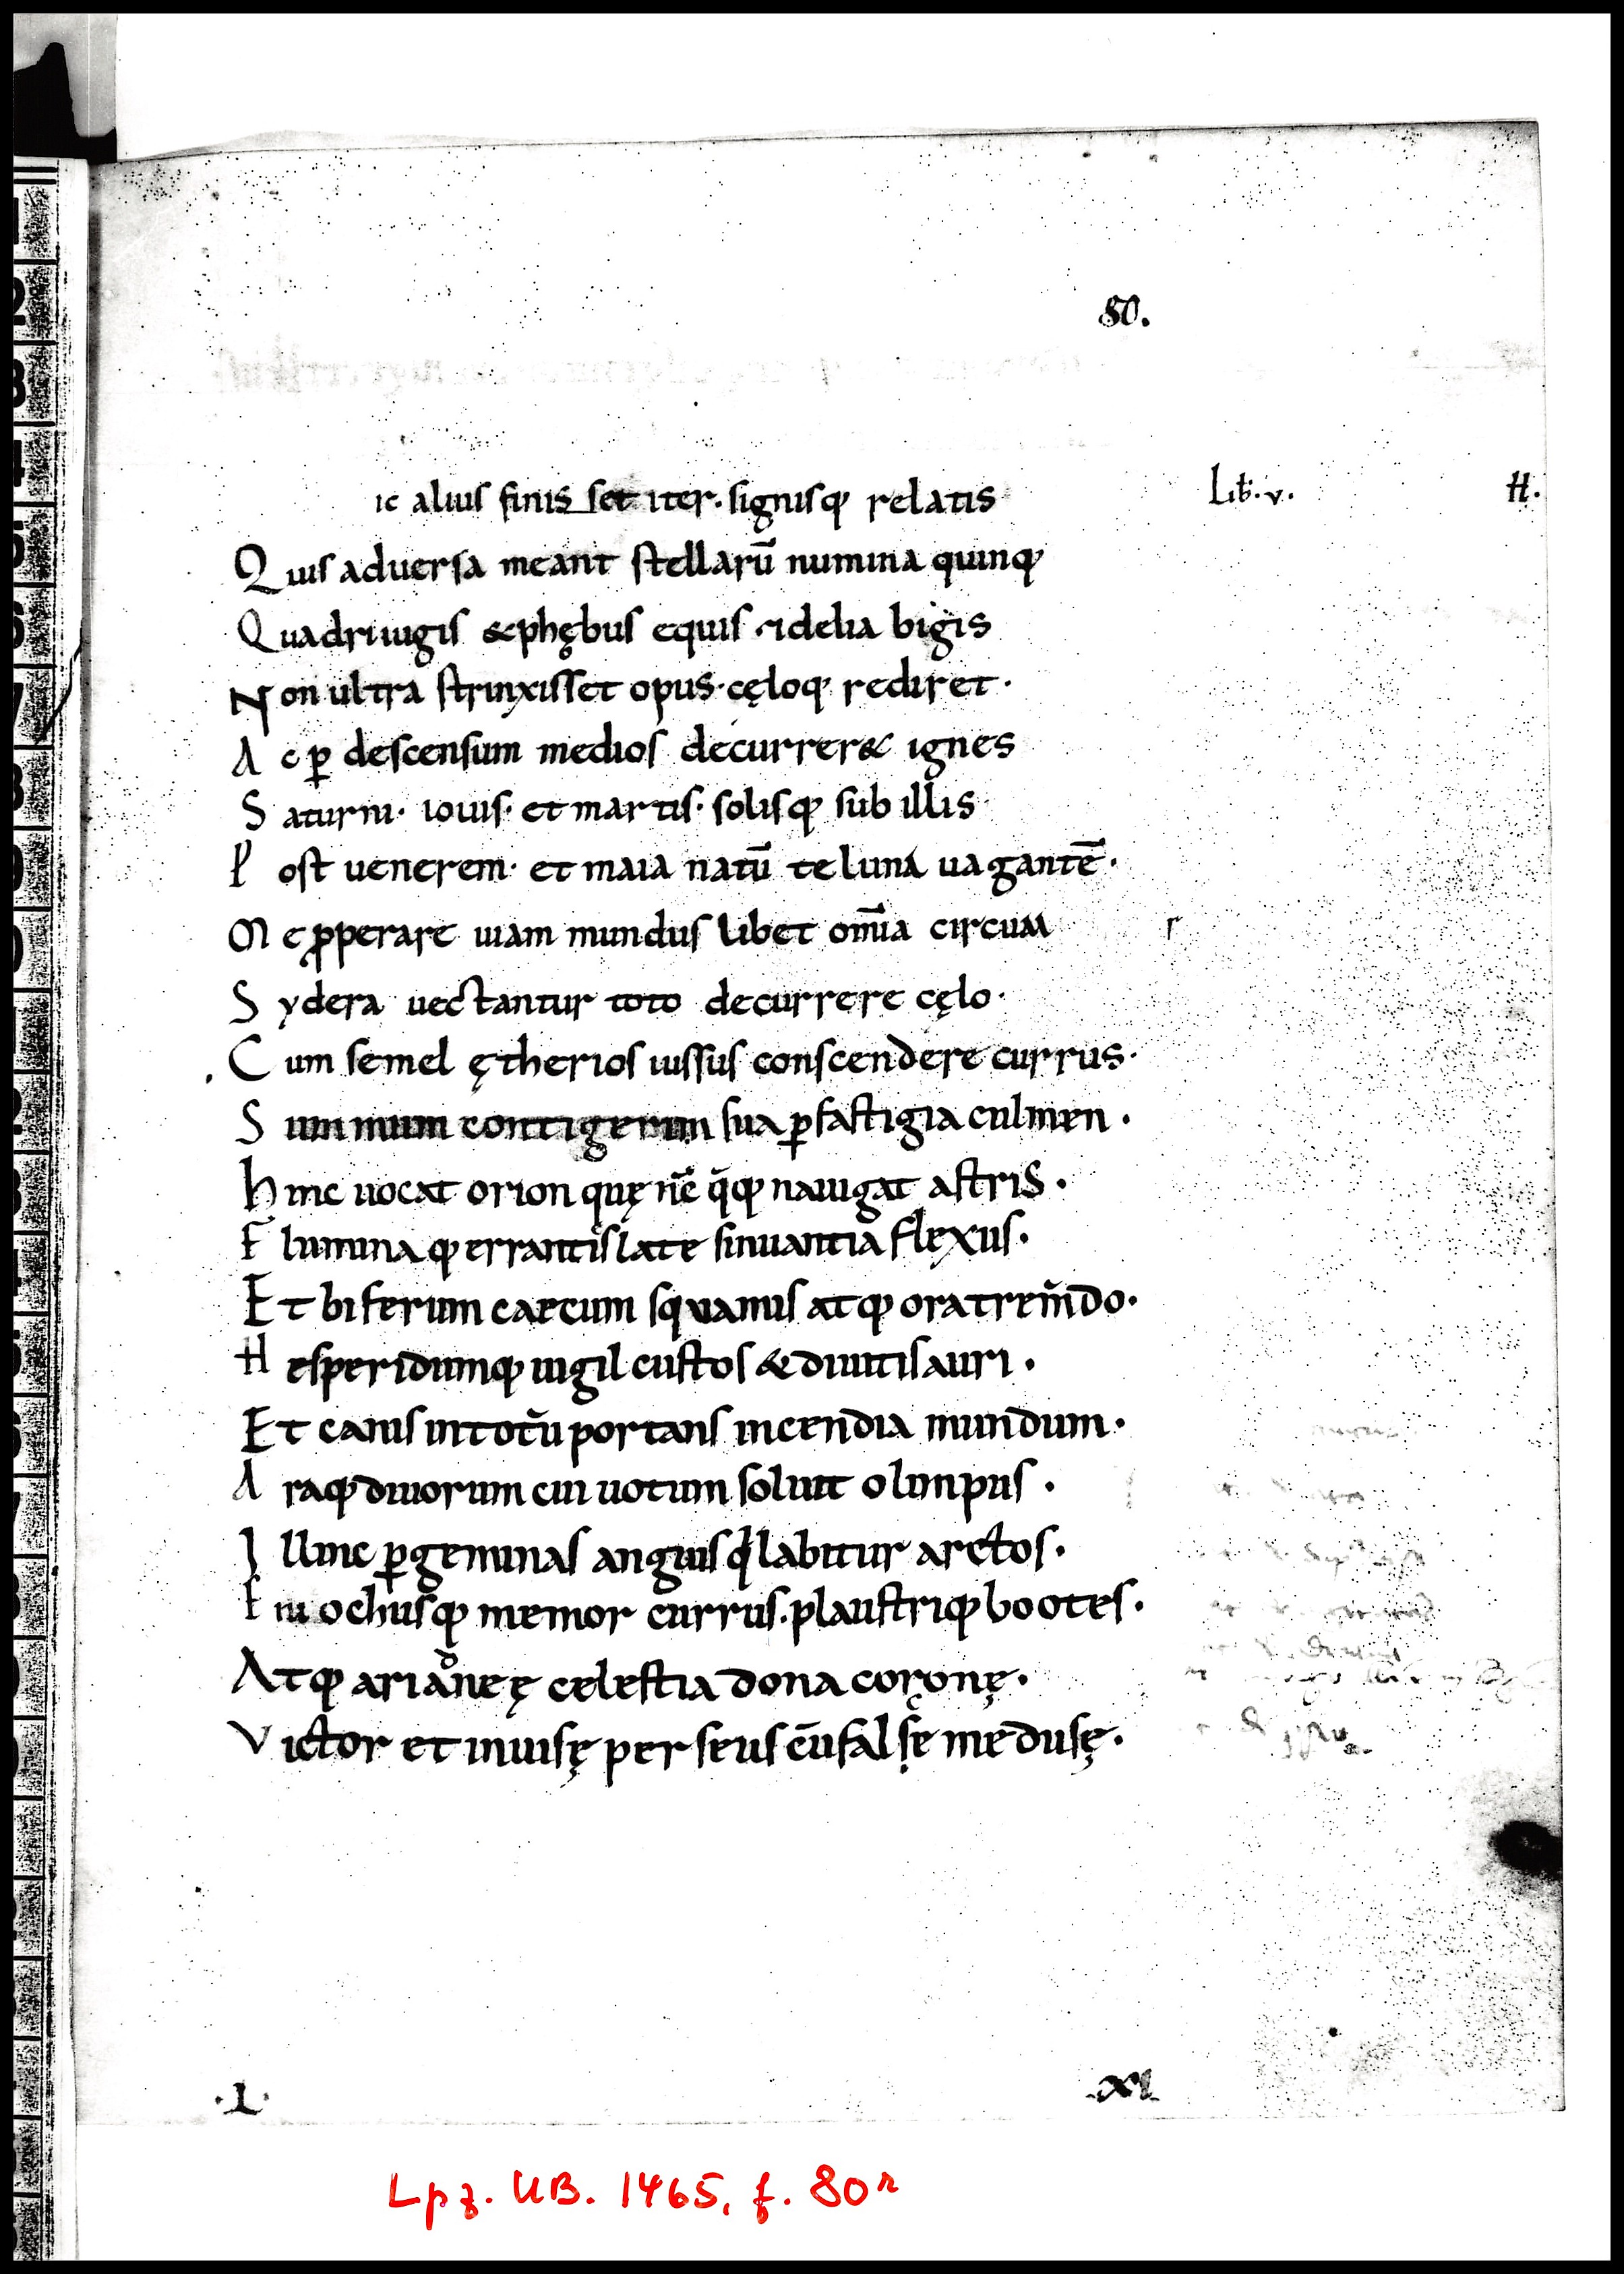 80.
ic aliuſ finis ſet iter. ſigniſqꝫ relatis
Lib. v.
H.
Q uiſ aduerſa meant ſtellarū numina quinqꝫ
Q uadriiugiſ &phębuſ equiſ. &delia bigis
N on ultra ſtrinxiſſet opus. cęloqꝫ rediret.
A c ꝑ deſcenſum medioſ decurrer& ignes
S aturni. iouiſ. et martiſ. ſoliſqꝫ ſub illis
P oſt uenerem. et maia natū te luna uagantē.
M e ꝓperare uiam munduſ libet om̄ia circum
r
S ydera uectantur toto decurrere cęlo.
C um ſemel ętherioſ iuſſuſ conſcendere currus.
S ummum contigerim ſua ꝑfaſtigia culmen.
h inc uocat orion quę nc̄ q̄qꝫ nauigat aſtris.
F luminaqꝫ errantiſ late ſinuantia flexuſ.
E t biferum caetum ſquamiſ atqꝫ ora trem̄do.
H eſperidumqꝫ uigil cuſtoſ &diuitiſ auri.
E t caniſ intotū portanſ incendia mundum.
A raqꝫ diuorum cui uotum ſoluit olimpuſ.
I llinc ꝑgeminaſ anguiſ qͥ labitur arctoſ.
E niochuſqꝫ memor curruſ. plauſtriqꝫ booteſ.
A tqꝫ arianeę celeſtia dona coronę.
V ictor et inuiſę perſeuſ cūfalſę meduſę.
.I.
XI
Lpz. UB. 1465, f. 80r